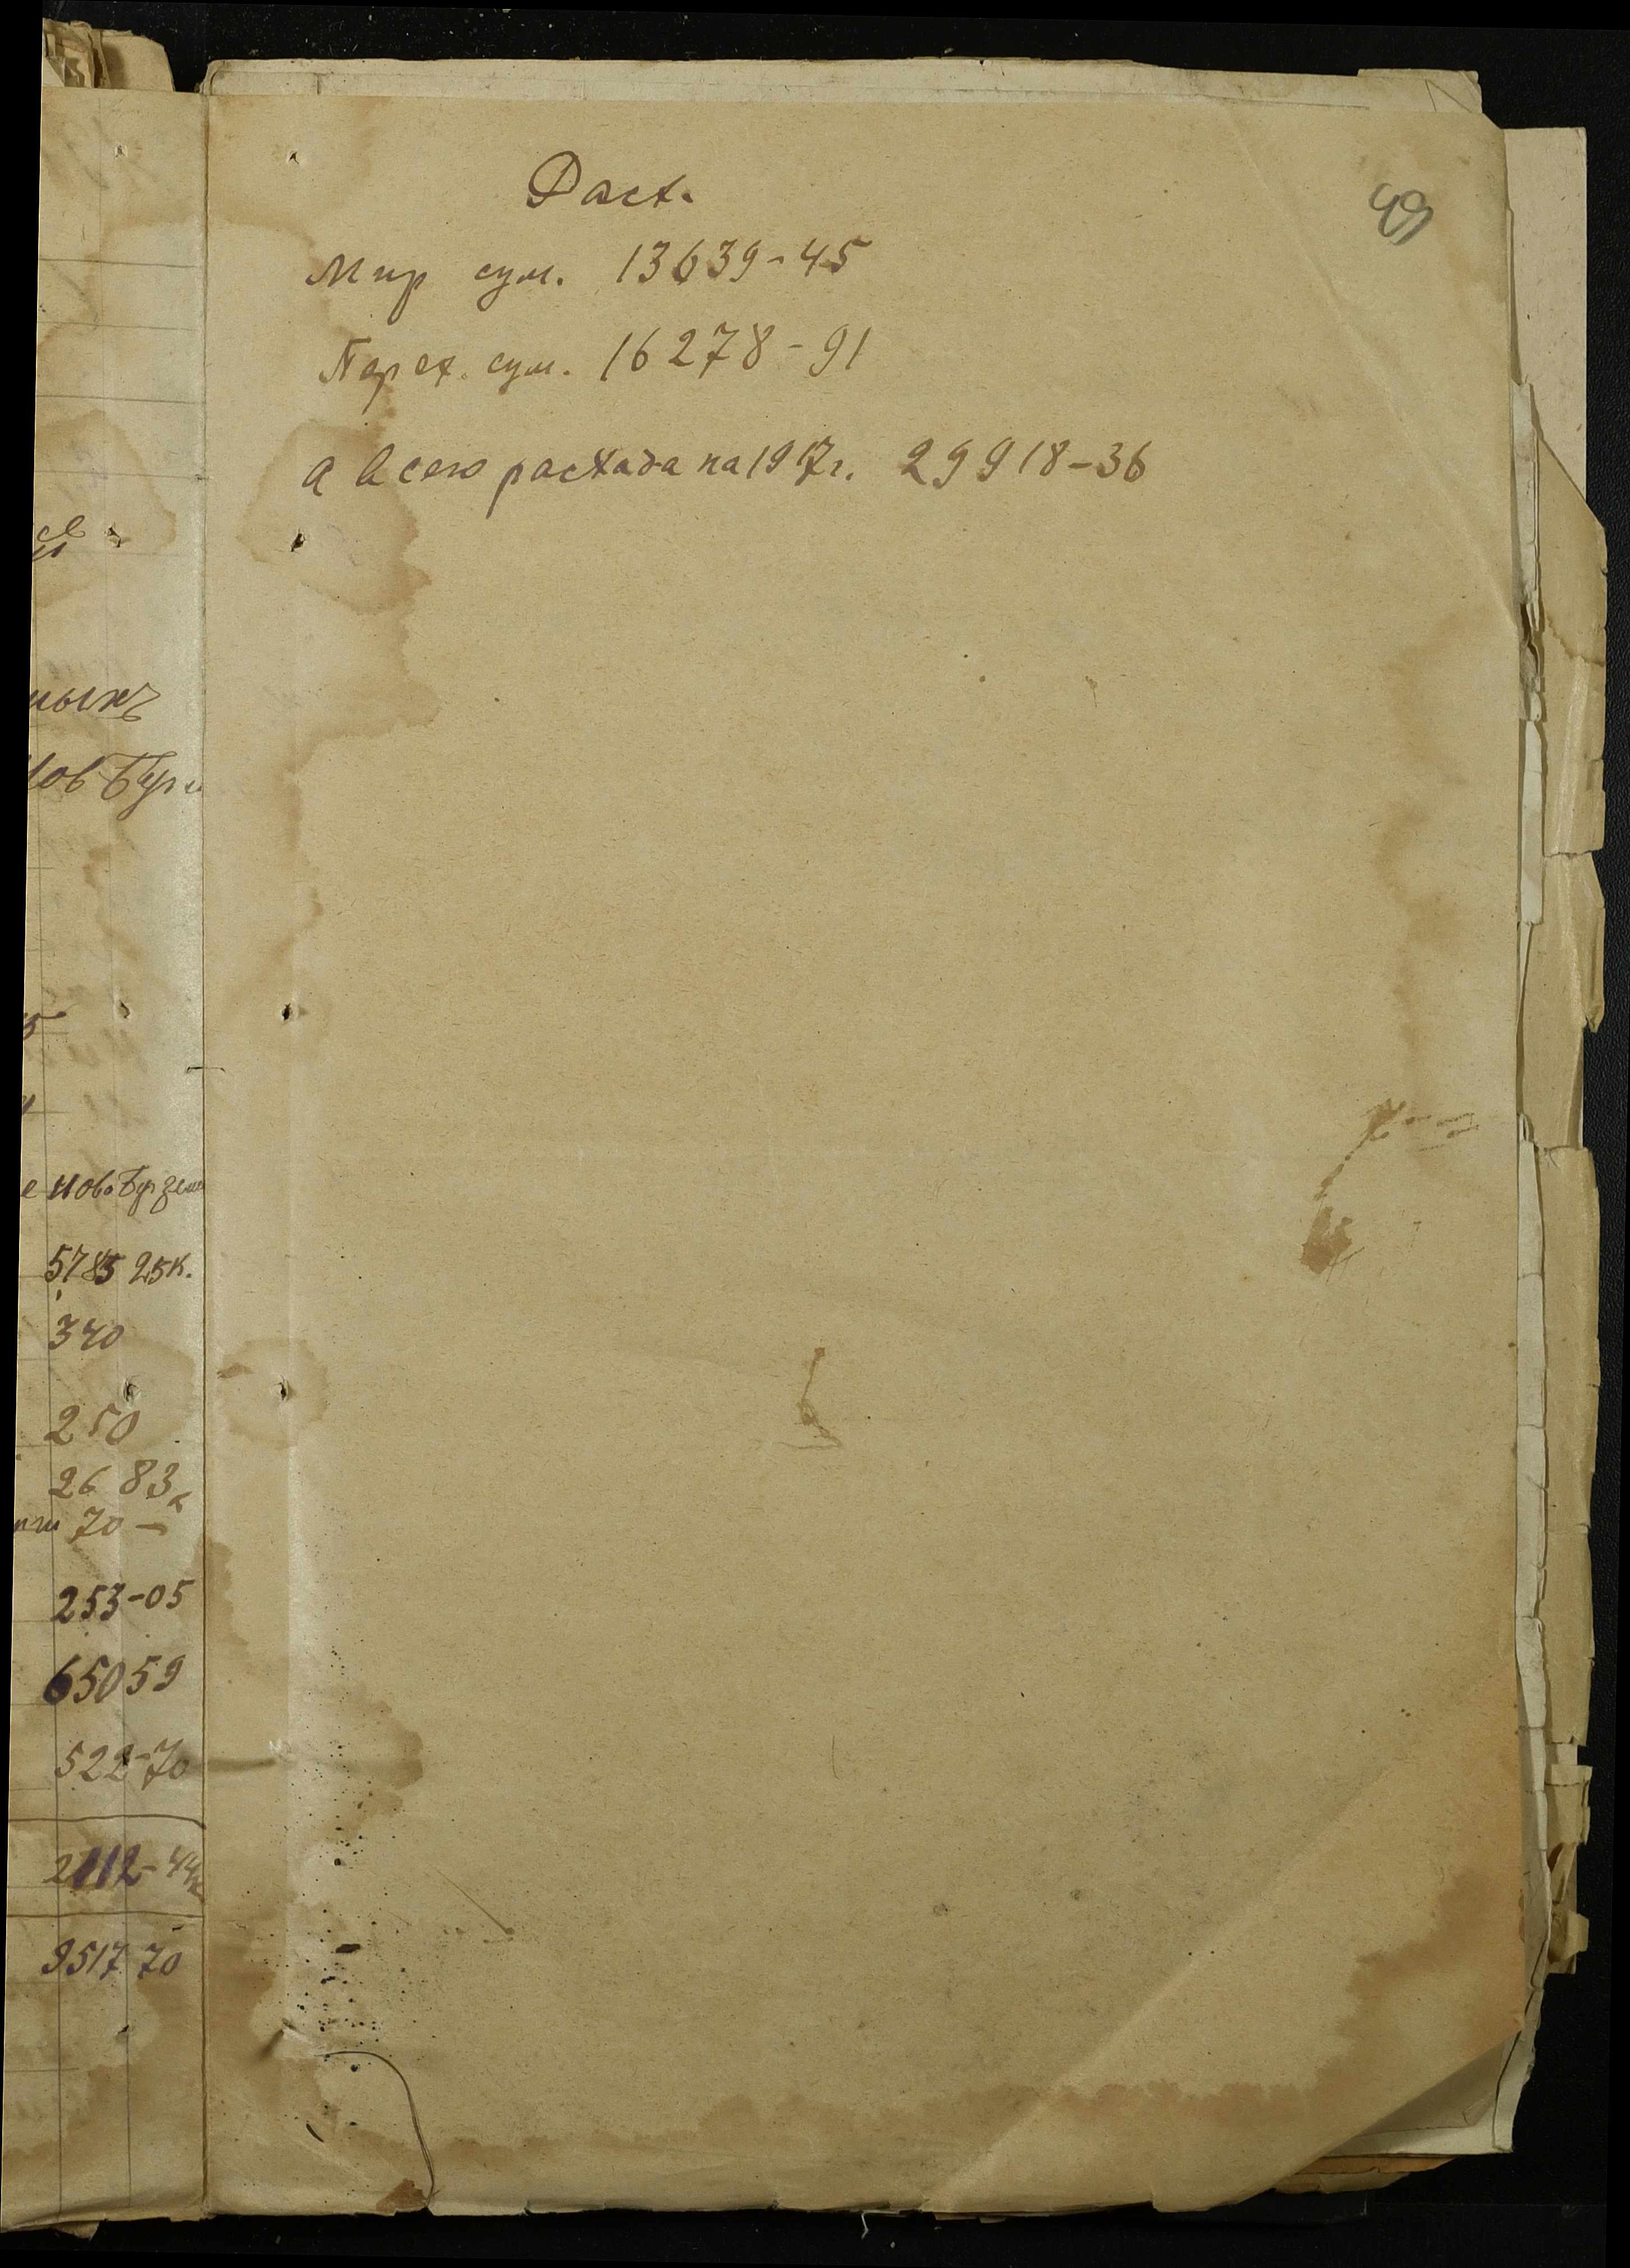 49
Расх.
Мир сум. 13639-45
Парех. сум. 16278-91
а всего расхода на 1917 г. 29918-36
ных
Нов Бур
е Ново Бурзем
5785 25к.
340
250
26 83к
70 -
253-05
650 59
522-70
2112-44к
9517 70